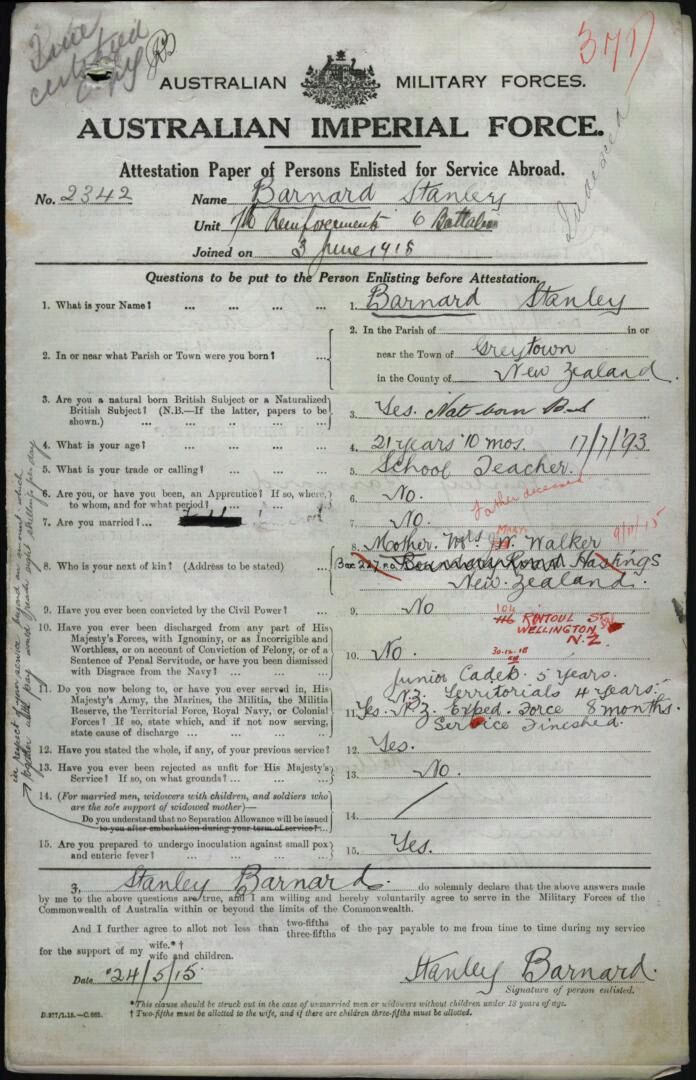 True
certified
Copy
377
AUSTRALIAN MILITARY FORCES.
AUSTRALIAN IMPERIAL FORCE.
Indexed
Attestation Paper of Persons Enlisted for Service Abroad.
No. 2342 Name Barnard Stanley
Unit 7th Reinforcements 6 Battalion
Joined on 3 June 1915
Questions to be put to the Person Enlisting before Attestation.
1. What is your Name? ... ... ... ... 1. Barnard Stanley
2. In or near what Parish or Town were you born? ... 2. In the Parish of in or
near the Town of Greytown
in the County of New Zealand.
3. Are you a natural born British Subject or a Naturalized
British Subject? (N.B.—If the latter, papers to be
shown.) ... ... ... ... ... 3. Yes. Nat born B.S
4. What is your age? ... ... ... ... 4. 21 years 10 mos. 17/7/93
5. What is your trade or calling? ... ... ... 5. School Teacher.
6. Are you, or have you been, an Apprentice? If so, where,
to whom, and for what period? ... ... 6. No.
Father deceased
7. Are you married? ... 7. No.
8. Who is your next of kin? (Address to be stated) ... 8. Mother. Mrs Mary Walker 9/11/15
Box 227 P.O. Boundary Road Hastings
New Zealand.
9. Have you ever been convicted by the Civil Power? ... 9. No
106
116 RINTOUL ST
WELLINGTON
N.Z.
30.12.18
10. Have you ever been discharged from any part of His
Majesty's Forces, with Ignominy, or as Incorrigible and
Worthless, or on account of Conviction of Felony, or of a
Sentence of Penal Servitude, or have you been dismissed
with Disgrace from the Navy? ... ... 10. No.
11. Do you now belong to, or have you ever served in, His
Majesty's Army, the Marines, the Militia, the Militia
Reserve, the Territorial Force, Royal Navy, or Colonial
Forces? If so, state which, and if not now serving,
state cause of discharge ... ... ...
Junior Cadet. 5 years.
N.Z. Territorials 4 years.
11. Yes. N.Z. Exped. Force 8 months.
Service Finished.
12. Have you stated the whole, if any, of your previous service? 12. Yes.
13. Have you ever been rejected as unfit for His Majesty's
Service? If so, on what grounds? ... ... 13. No.
14. (For married men, widowers with children, and soldiers who
are the sole support of widowed mother)—
Do you understand that no Separation Allowance will be issued
to you after embarkation during your term of service? 14.
in respect of your service beyond an amount which
together with pay would reach eight shillings per day
15. Are you prepared to undergo inoculation against small pox
and enteric fever? ... ... ... ... 15. Yes.
I, Stanley Barnard. do solemnly declare that the above answers made
by me to the above questions are true, and I am willing and hereby voluntarily agree to serve in the Military Forces of the
Commonwealth of Australia within or beyond the limits of the Commonwealth.
And I further agree to allot not less than two-fifths three-fifths of the pay payable to me from time to time during my service
for the support of my wife.*† wife and children.
Date 24/5/15. Stanley Barnard.
Signature of person enlisted.
*This clause should be struck out in the case of unmarried men or widowers without children under 18 years of age.
† Two-fifths must be allotted to the wife, and if there are children three-fifths must be allotted.
D.977/1.15.—C.665.